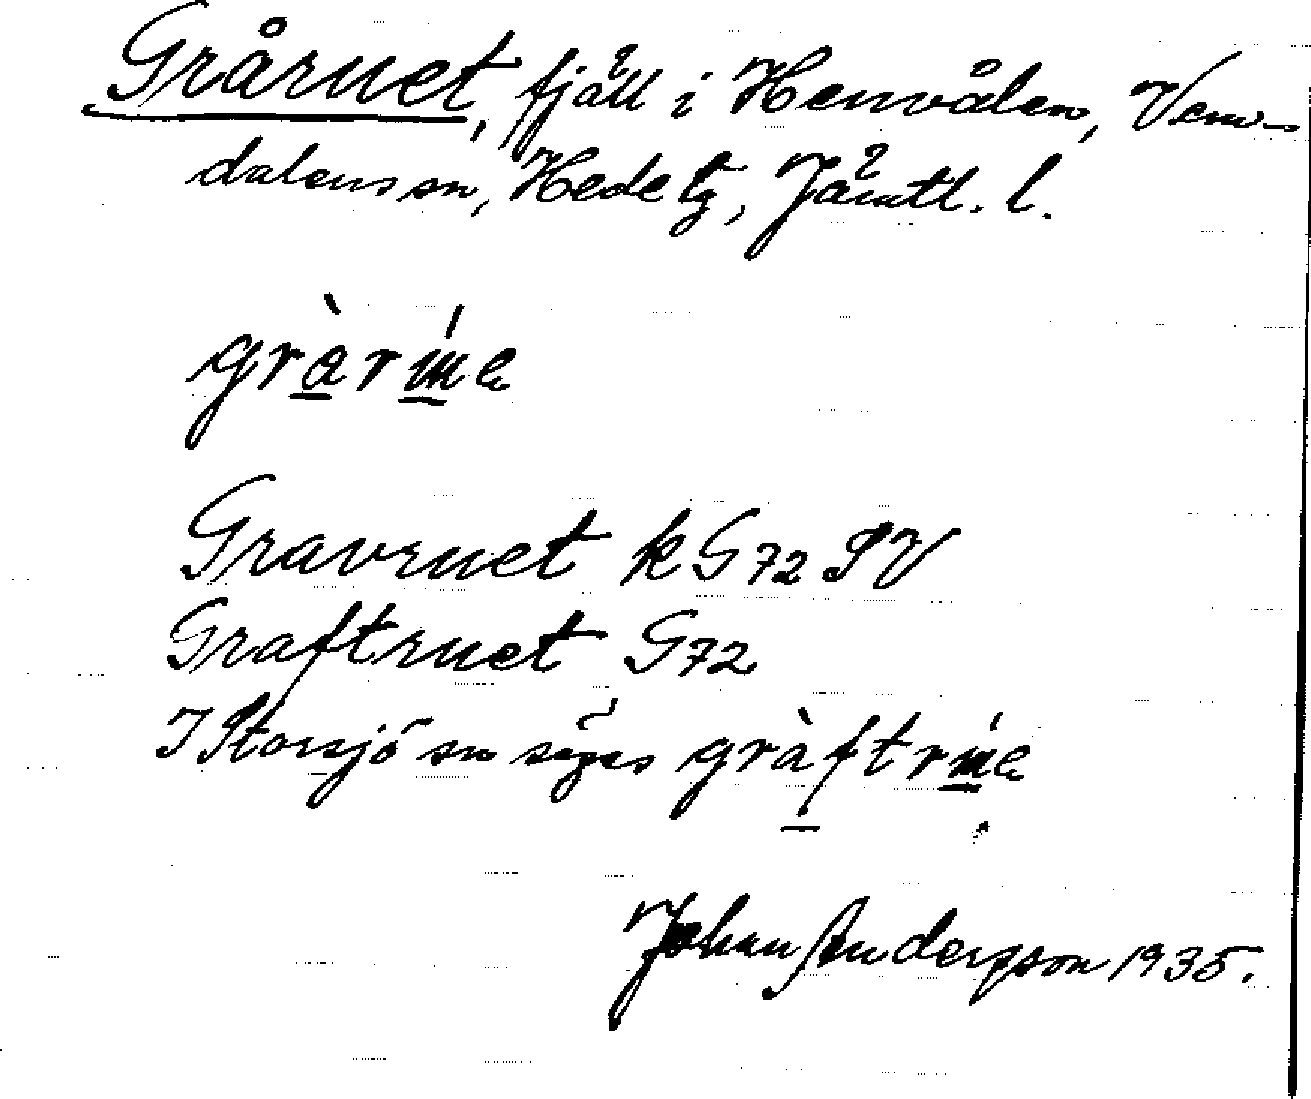 Gråruet, fjäll i Henvålen, Vem-
dalens sn, Hede tg, Jämtl. l.
Gravruet kG72 SV
Graftruet G72
I Storsjö sn säges
Johan Andersson 1935.